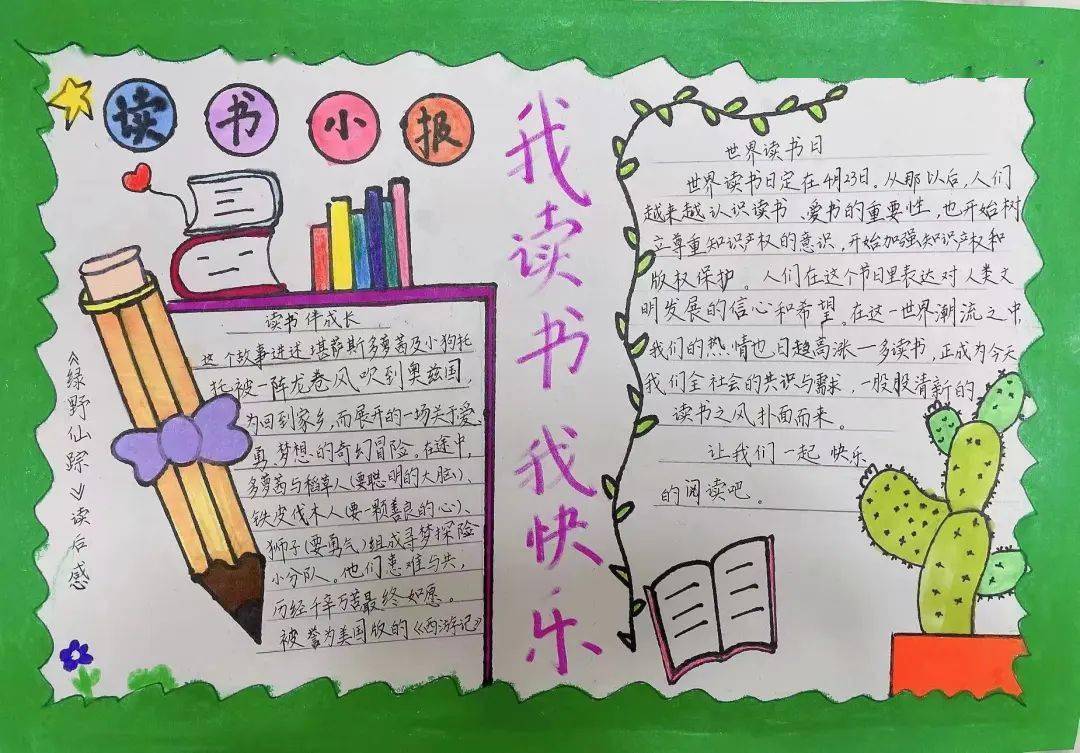 读书小报
《绿野仙踪》读后感
读书伴成长
这个故事进述堪萨斯多萝茜及小狗托
托被一阵龙卷风吹到奥兹国,
为回到家乡,而展开的一场关于爱、
勇、梦想的奇幻冒险。在途中,
多萝茜与稻草人(要聪明的大脑)、
铁皮伐木人(要一颗善良的心)、
狮子(要勇气)组成寻梦探险
小分队。他们患难与共,
历经千辛万苦最终如愿。
被誉为美国版的《西游记》
我读书我快乐
世界读书日
世界读书日定在4月23日。从那以后,人们
越来越认识读书、爱书的重要性,也开始树
立尊重知识产权的意识,开始加强知识产权和
版权保护。人们在这个节日里表达对人类文
明发展的信心和希望。在这一世界潮流之中,
我们的热情也日趋高涨一多读书,正成为今天
我们全社会的共识与需求,一股股清新的
读书之风扑面而来。
让我们一起快乐
的阅读吧。